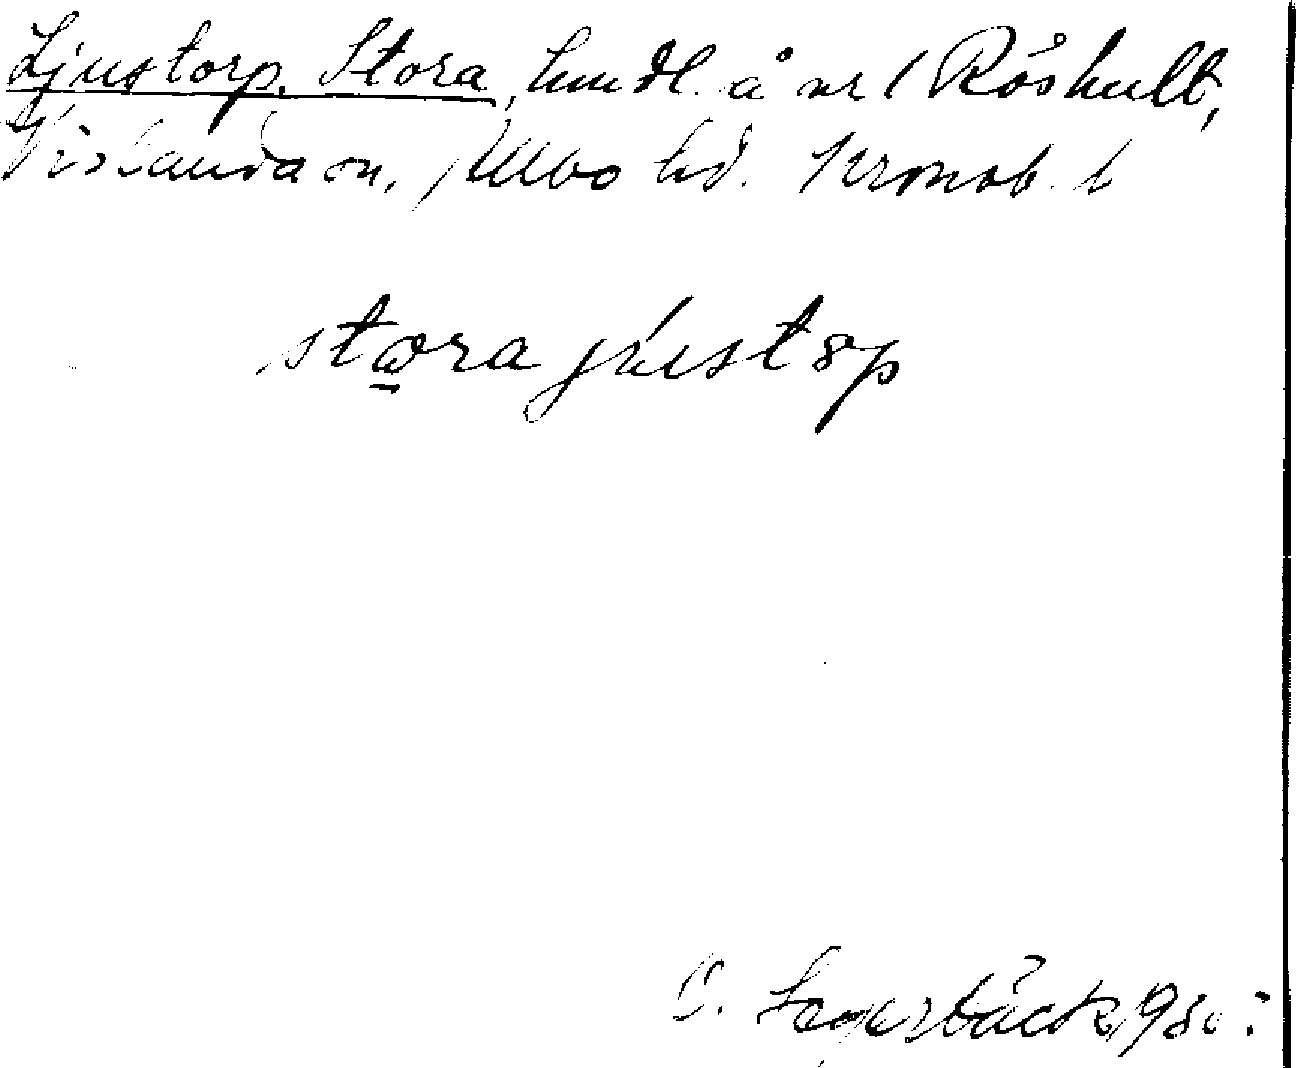 Ljustorp, Stora, hmdl. å nr 1 Röshult,
Vislanda sn, Allbo hd. Kronob. l
stѡra jústɐp
Lagerbäck 1930